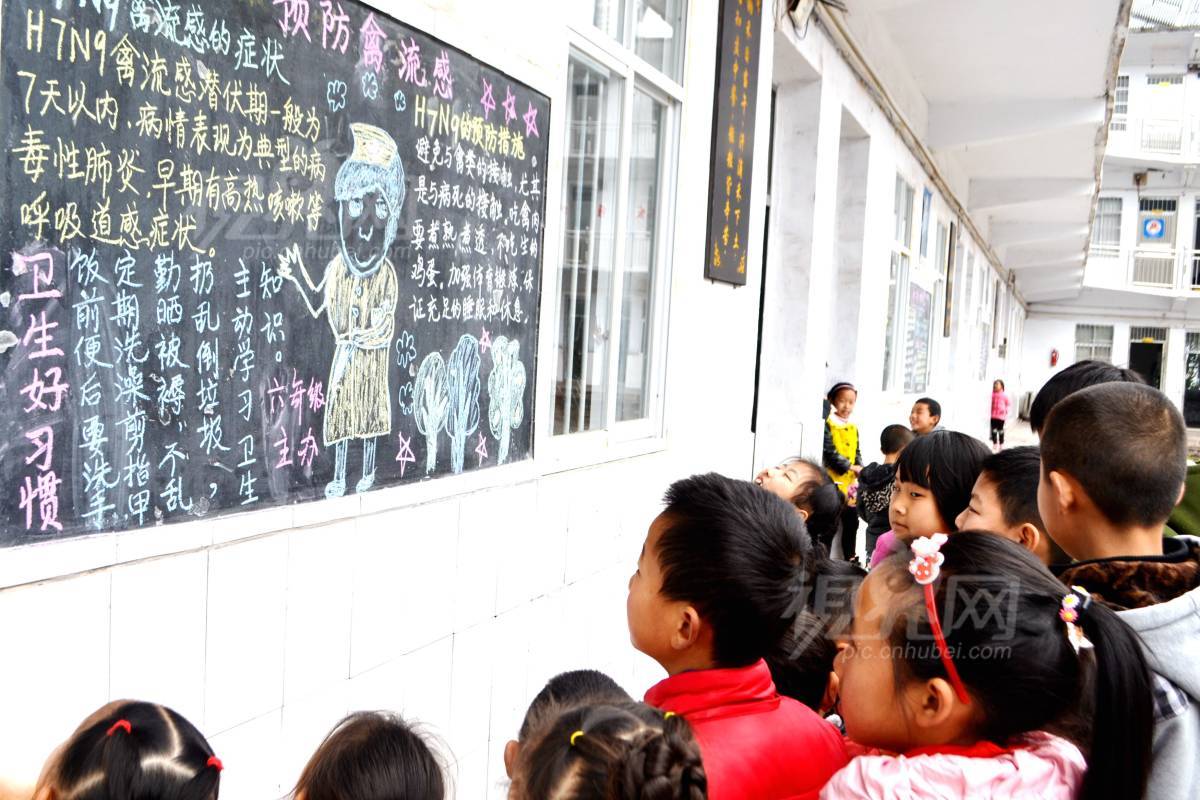 预防禽流感
H7N9禽流感的症状
H7N9禽流感潜伏期一般为
7天以内，病情表现为典型的病
毒性肺炎，早期有高热咳嗽等
呼吸道感症状。
H7N9的预防措施
避免与禽类的接触，尤其
是与病死的接触，吃禽肉
要煮熟煮透，不吃生的
鸡蛋。加强体育锻炼，保
证充足的睡眠和休息。
卫生好习惯
饭前便后要洗手
定期洗澡剪指甲
勤晒被褥，不乱
扔乱倒垃圾，
主动学习卫生
知识。
六年级
主办
視界网
pic.cnhubei.com